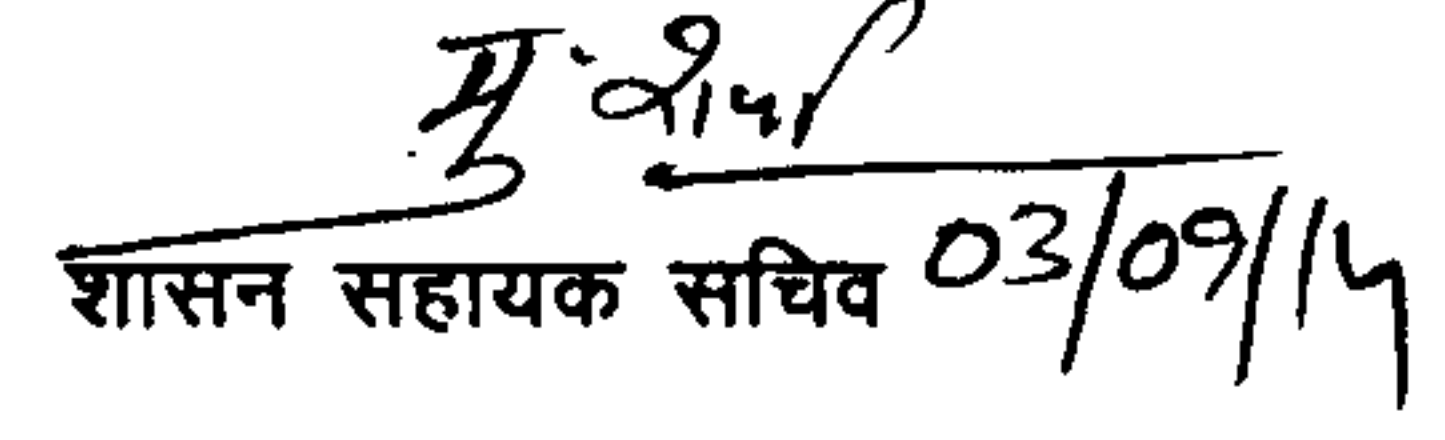 शासन सहायक सचिव 03/09/14